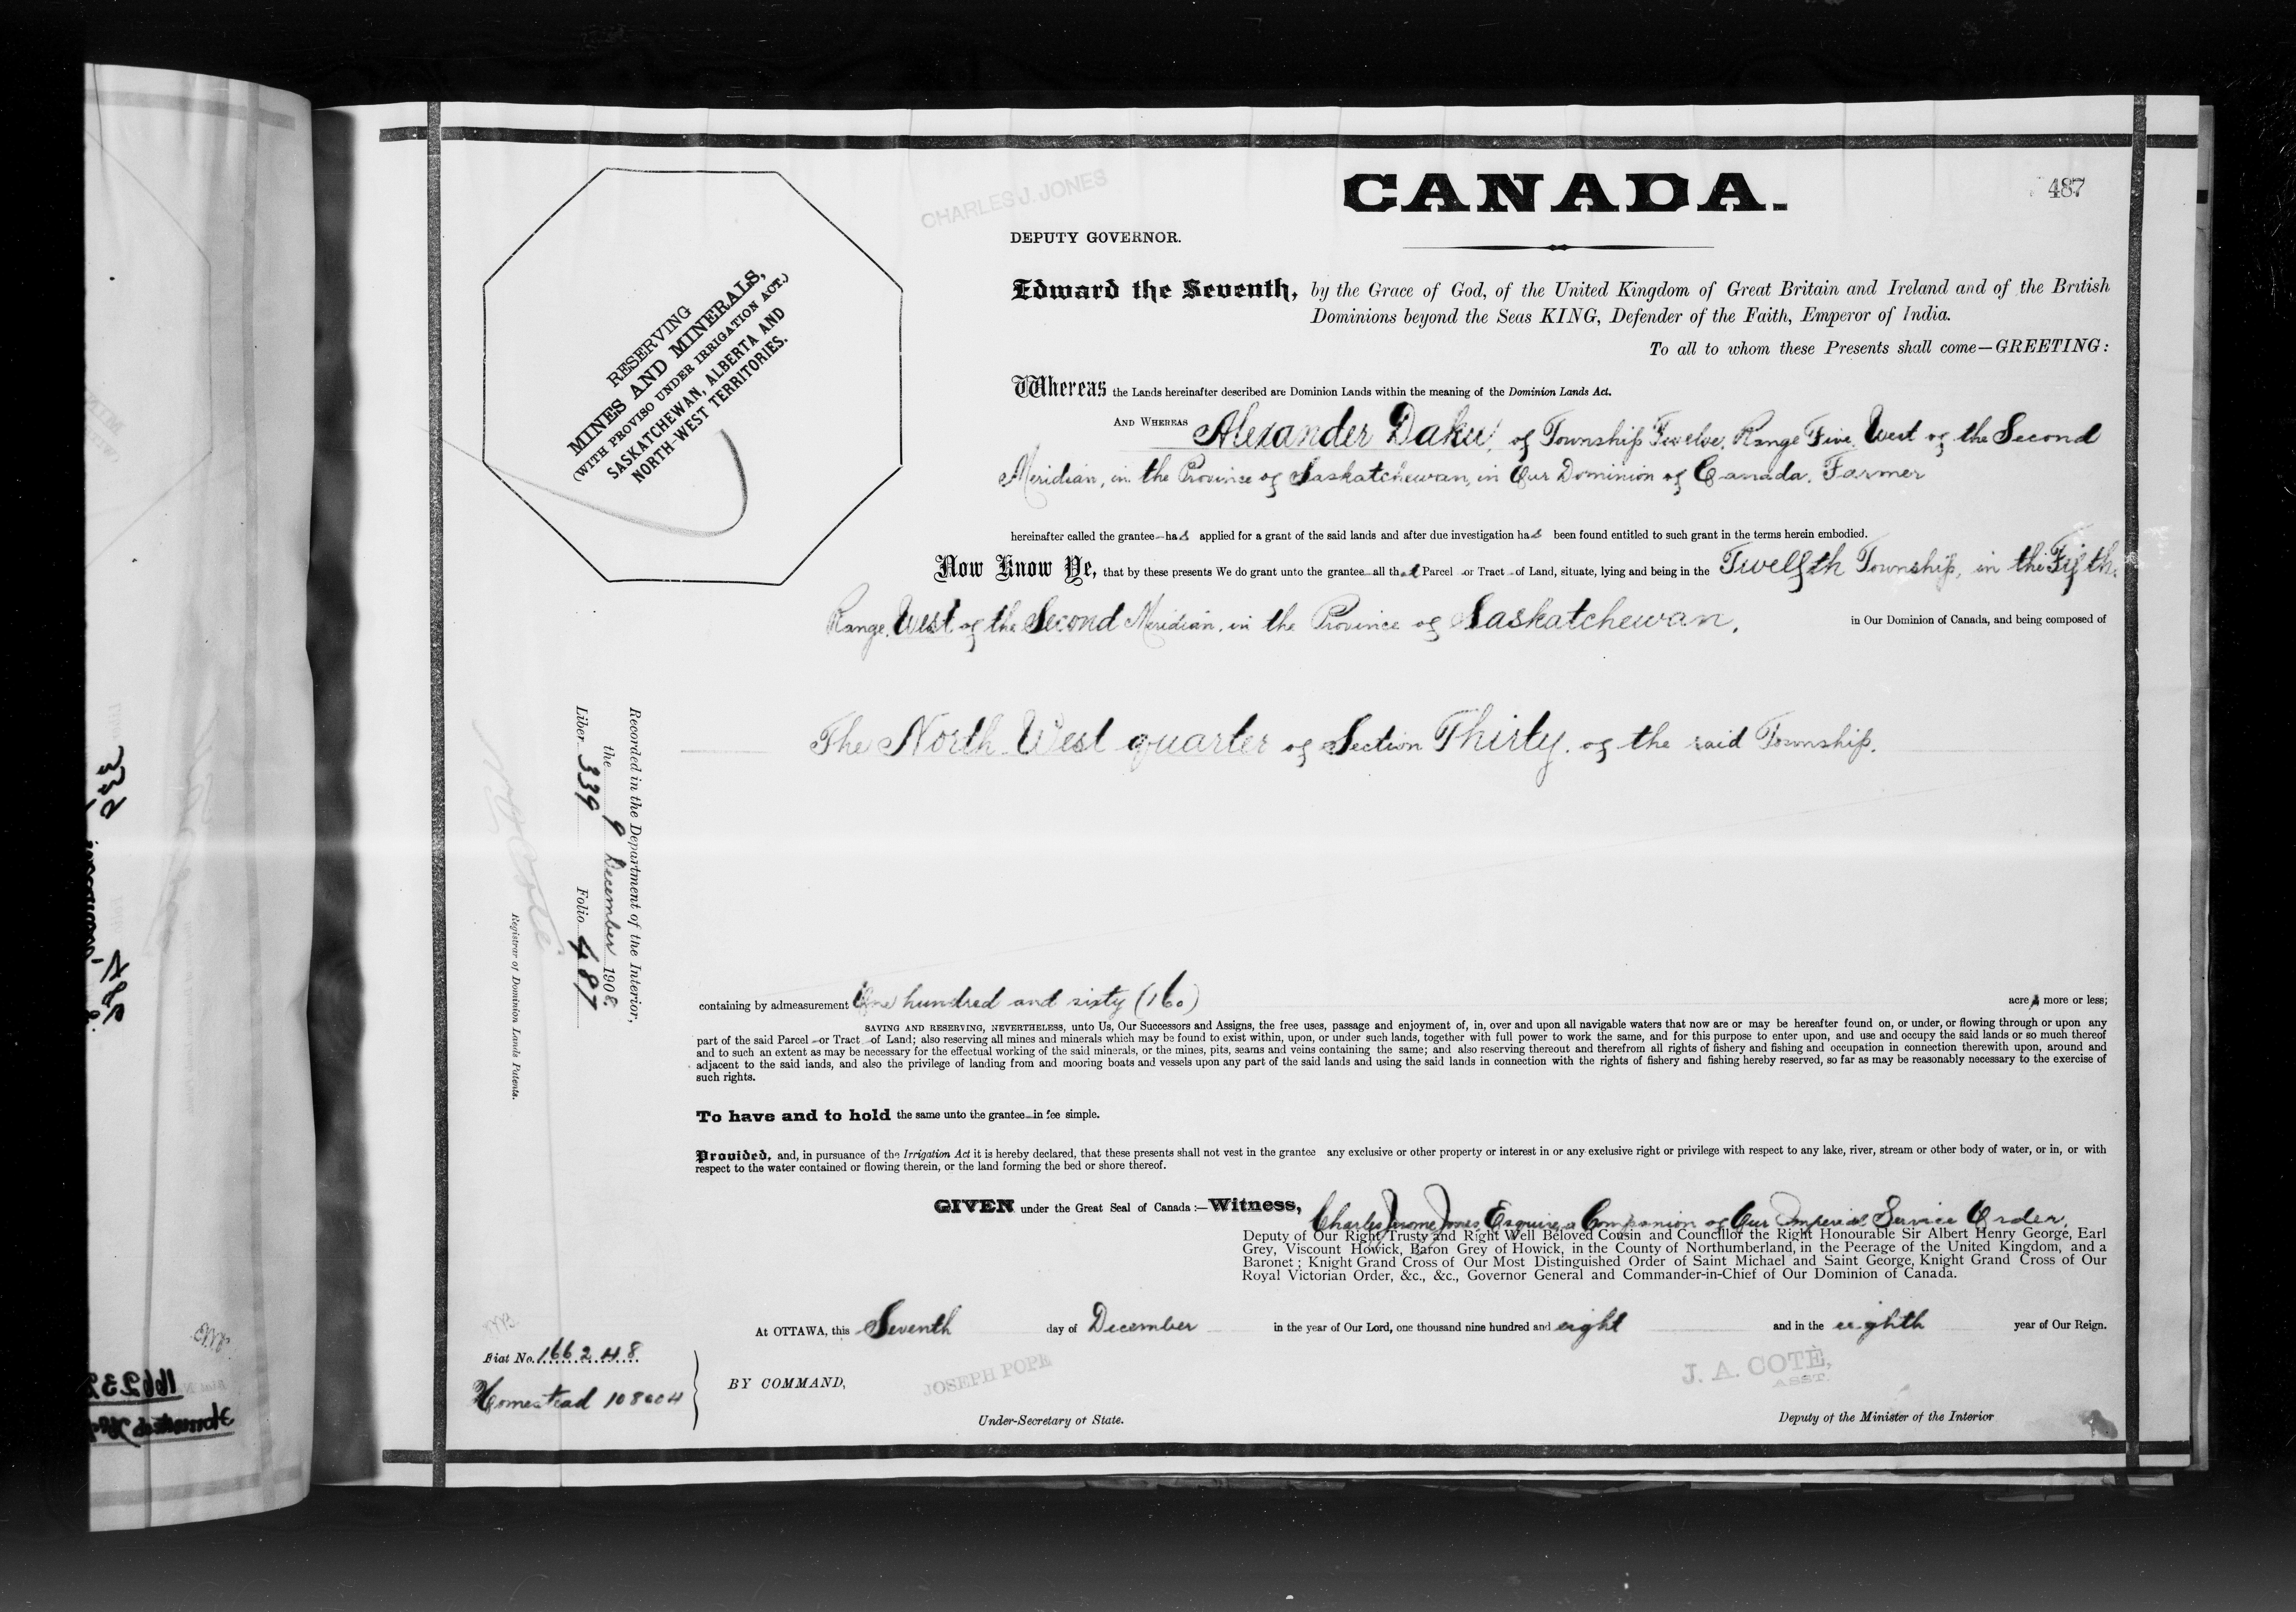 CANADA.
487
CHARLES J. JONES
DEPUTY GOVERNOR.
RESERVING
MINES AND MINERALS,
(WITH PROVISO UNDER IRRIGATION ACT.)
SASKATCHEWAN, ALBERTA AND
NORTH-WEST TERRITORIES.
Edward the Seventh, by the Grace of God, of the United Kingdom of Great Britain and Ireland and of the British
Dominions beyond the Seas KING, Defender of the Faith, Emperor of India.
To all to whom these Presents shall come—GREETING:
Whereas the Lands hereinafter described are Dominion Lands within the meaning of the Dominion Lands Act.
AND WHEREAS Alexander Daku, of Township Twelve, Range Five, West of the Second
Meridian, in the Province of Saskatchewan, in Our Dominion of Canada, Farmer
hereinafter called the grantee—has applied for a grant of the said lands and after due investigation has been found entitled to such grant in the terms herein embodied.
Now Know Ye, that by these presents We do grant unto the grantee—all that Parcel—or Tract—of Land, situate, lying and being in the Twelfth Township, in the Fifth
Range, West of the Second Meridian, in the Province of Saskatchewan, in Our Dominion of Canada, and being composed of
The North West quarter of Section Thirty, of the said Township.
Recorded in the Department of the Interior,
the 9 December 1908
Liber 339 Folio 487
Registrar of Dominion Lands Patents.
containing by admeasurement One hundred and sixty (160) acres more or less;
SAVING AND RESERVING, NEVERTHELESS, unto Us, Our Successors and Assigns, the free uses, passage and enjoyment of, in, over and upon all navigable waters that now are or may be hereafter found on, or under, or flowing through or upon any
part of the said Parcel—or Tract—of Land; also reserving all mines and minerals which may be found to exist within, upon, or under such lands, together with full power to work the same, and for this purpose to enter upon, and use and occupy the said lands or so much thereof
and to such an extent as may be necessary for the effectual working of the said minerals, or the mines, pits, seams and veins containing the same; and also reserving thereout and therefrom all rights of fishery and fishing and occupation in connection therewith upon, around and
adjacent to the said lands, and also the privilege of landing from and mooring boats and vessels upon any part of the said lands and using the said lands in connection with the rights of fishery and fishing hereby reserved, so far as may be reasonably necessary to the exercise of
such rights.
To have and to hold the same unto the grantee—in fee simple.
Provided, and, in pursuance of the Irrigation Act it is hereby declared, that these presents shall not vest in the grantee any exclusive or other property or interest in or any exclusive right or privilege with respect to any lake, river, stream or other body of water, or in, or with
respect to the water contained or flowing therein, or the land forming the bed or shore thereof.
GIVEN under the Great Seal of Canada:—Witness, Charles Jerome Jones Esquire, a Companion of Our Imperial Service Order,
Deputy of Our Right Trusty and Right Well Beloved Cousin and Councillor the Right Honourable Sir Albert Henry George, Earl
Grey, Viscount Howick, Baron Grey of Howick, in the County of Northumberland, in the Peerage of the United Kingdom, and a
Baronet; Knight Grand Cross of Our Most Distinguished Order of Saint Michael and Saint George, Knight Grand Cross of Our
Royal Victorian Order, &c., &c., Governor General and Commander-in-Chief of Our Dominion of Canada.
At OTTAWA, this Seventh day of December in the year of Our Lord, one thousand nine hundred and eight and in the eighth year of Our Reign.
Fiat No. 166248
Homestead 108604
BY COMMAND,
JOSEPH POPE
Under-Secretary of State.
J. A. COTÈ,
ASST.
Deputy of the Minister of the Interior